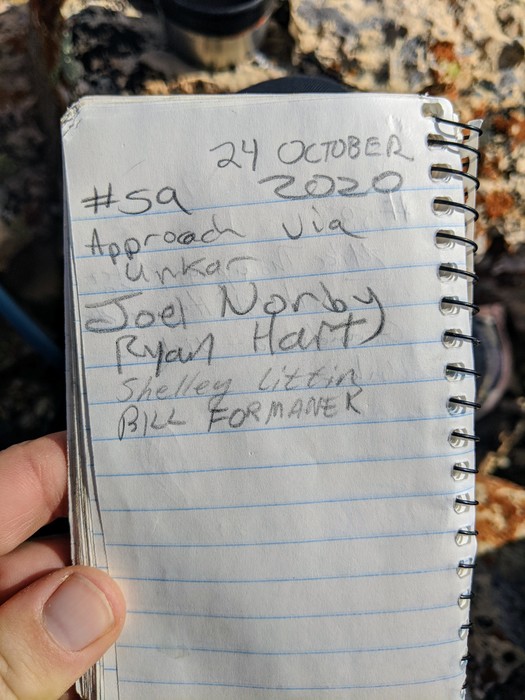 24 OCTOBER
2020
#5a
Approach via
Unkar
Joel Norby
Ryan Hart
Shelley Littin
BILL FORMANEK